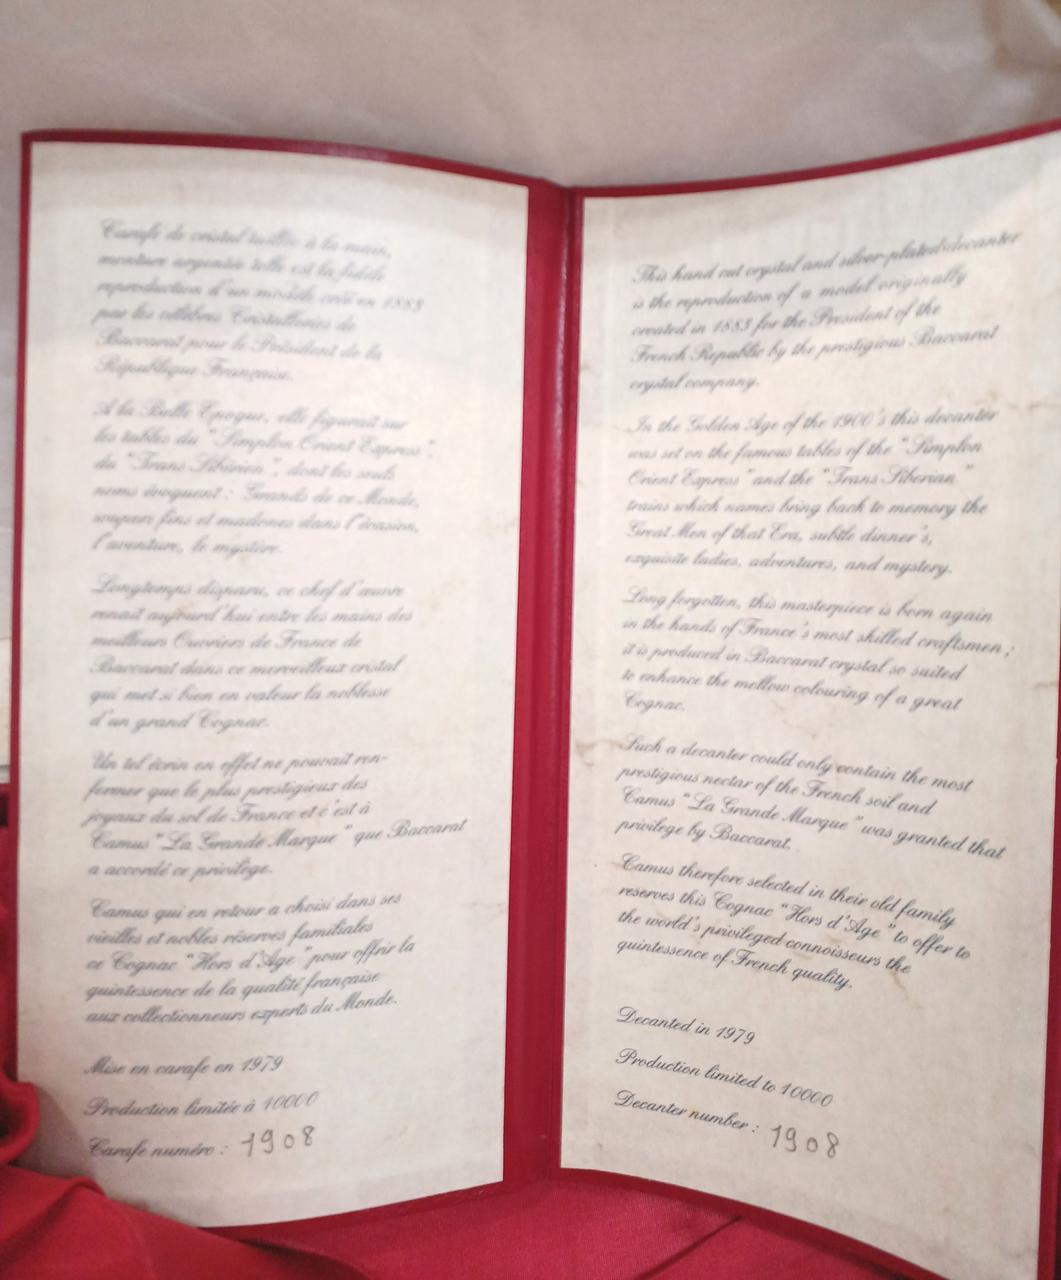 Carafe de cristal taillée à la main,
monture argentée telle est la fidèle
reproduction d'un modèle créé en 1883
par les célèbres Cristalleries de
Baccarat pour le Président de la
République Française.
A la Belle Epoque, elle figurait sur
les tables du "Simplon Orient Express",
du "Trans Sibérien", dont les seuls
noms évoquent : Grands de ce Monde,
soupers fins et madones dans l'évasion,
l'aventure, le mystère.
Longtemps disparu, ce chef d'œuvre
renait aujourd'hui entre les mains des
meilleurs Ouvriers de France de
Baccarat dans ce merveilleux cristal
qui met si bien en valeur la noblesse
d'un grand Cognac.
Un tel écrin en effet ne pouvait ren-
fermer que le plus prestigieux des
joyaux du sol de France et c'est à
Camus "La Grande Marque" que Baccarat
a accordé ce privilège.
Camus qui en retour a choisi dans ses
vieilles et nobles réserves familiales
ce Cognac "Hors d'Age" pour offrir la
quintessence de la qualité française
aux collectionneurs experts du Monde.
Mise en carafe en 1979
Production limitée à 10000
Carafe numéro : 1908
This hand cut crystal and silver-plated decanter
is the reproduction of a model originally
created in 1883 for the President of the
French Republic by the prestigious Baccarat
crystal company.
In the Golden Age of the 1900's this decanter
was set on the famous tables of the "Simplon
Orient Express" and the "Trans Siberian"
trains which names bring back to memory the
Great Men of that Era, subtle dinner's,
exquisite ladies, adventures, and mystery.
Long forgotten, this masterpiece is born again
in the hands of France's most skilled craftsmen ;
it is produced in Baccarat crystal so suited
to enhance the mellow colouring of a great
Cognac.
Such a decanter could only contain the most
prestigious nectar of the French soil and
Camus "La Grande Marque" was granted that
privilege by Baccarat.
Camus therefore selected in their old family
reserves this Cognac "Hors d'Age" to offer to
the world's privileged connoisseurs the
quintessence of French quality.
Decanted in 1979
Production limited to 10000
Decanter number : 1908